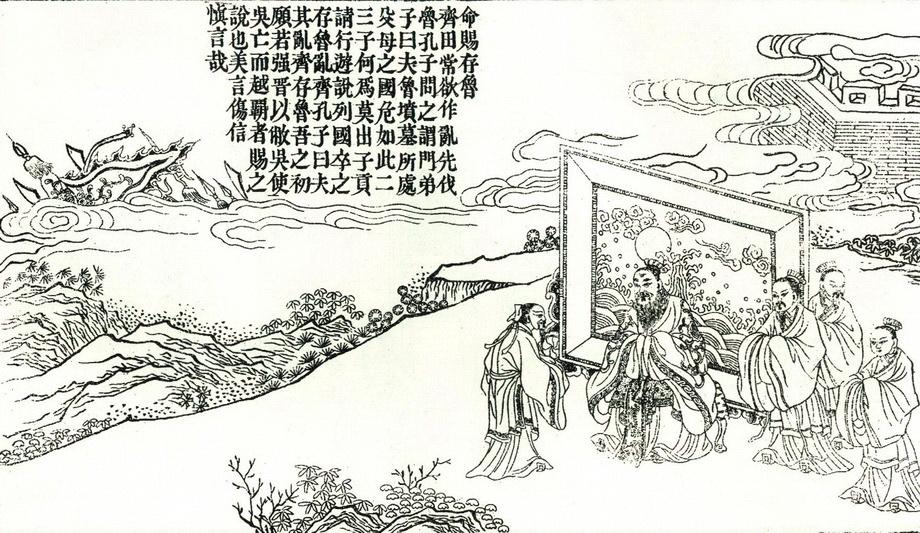 命賜存魯
齊田常欲作亂先伐
魯孔子問之謂門弟
子曰夫魯墳墓所處
父母之國危如此二
三子何爲莫出子貢
請行遊說列國卒之
存魯亂齊孔子曰夫
其亂齊存魯吾之初
願若强晋以敝吳使
吳亡而越覇者賜之
說也美言傷信
慎言哉